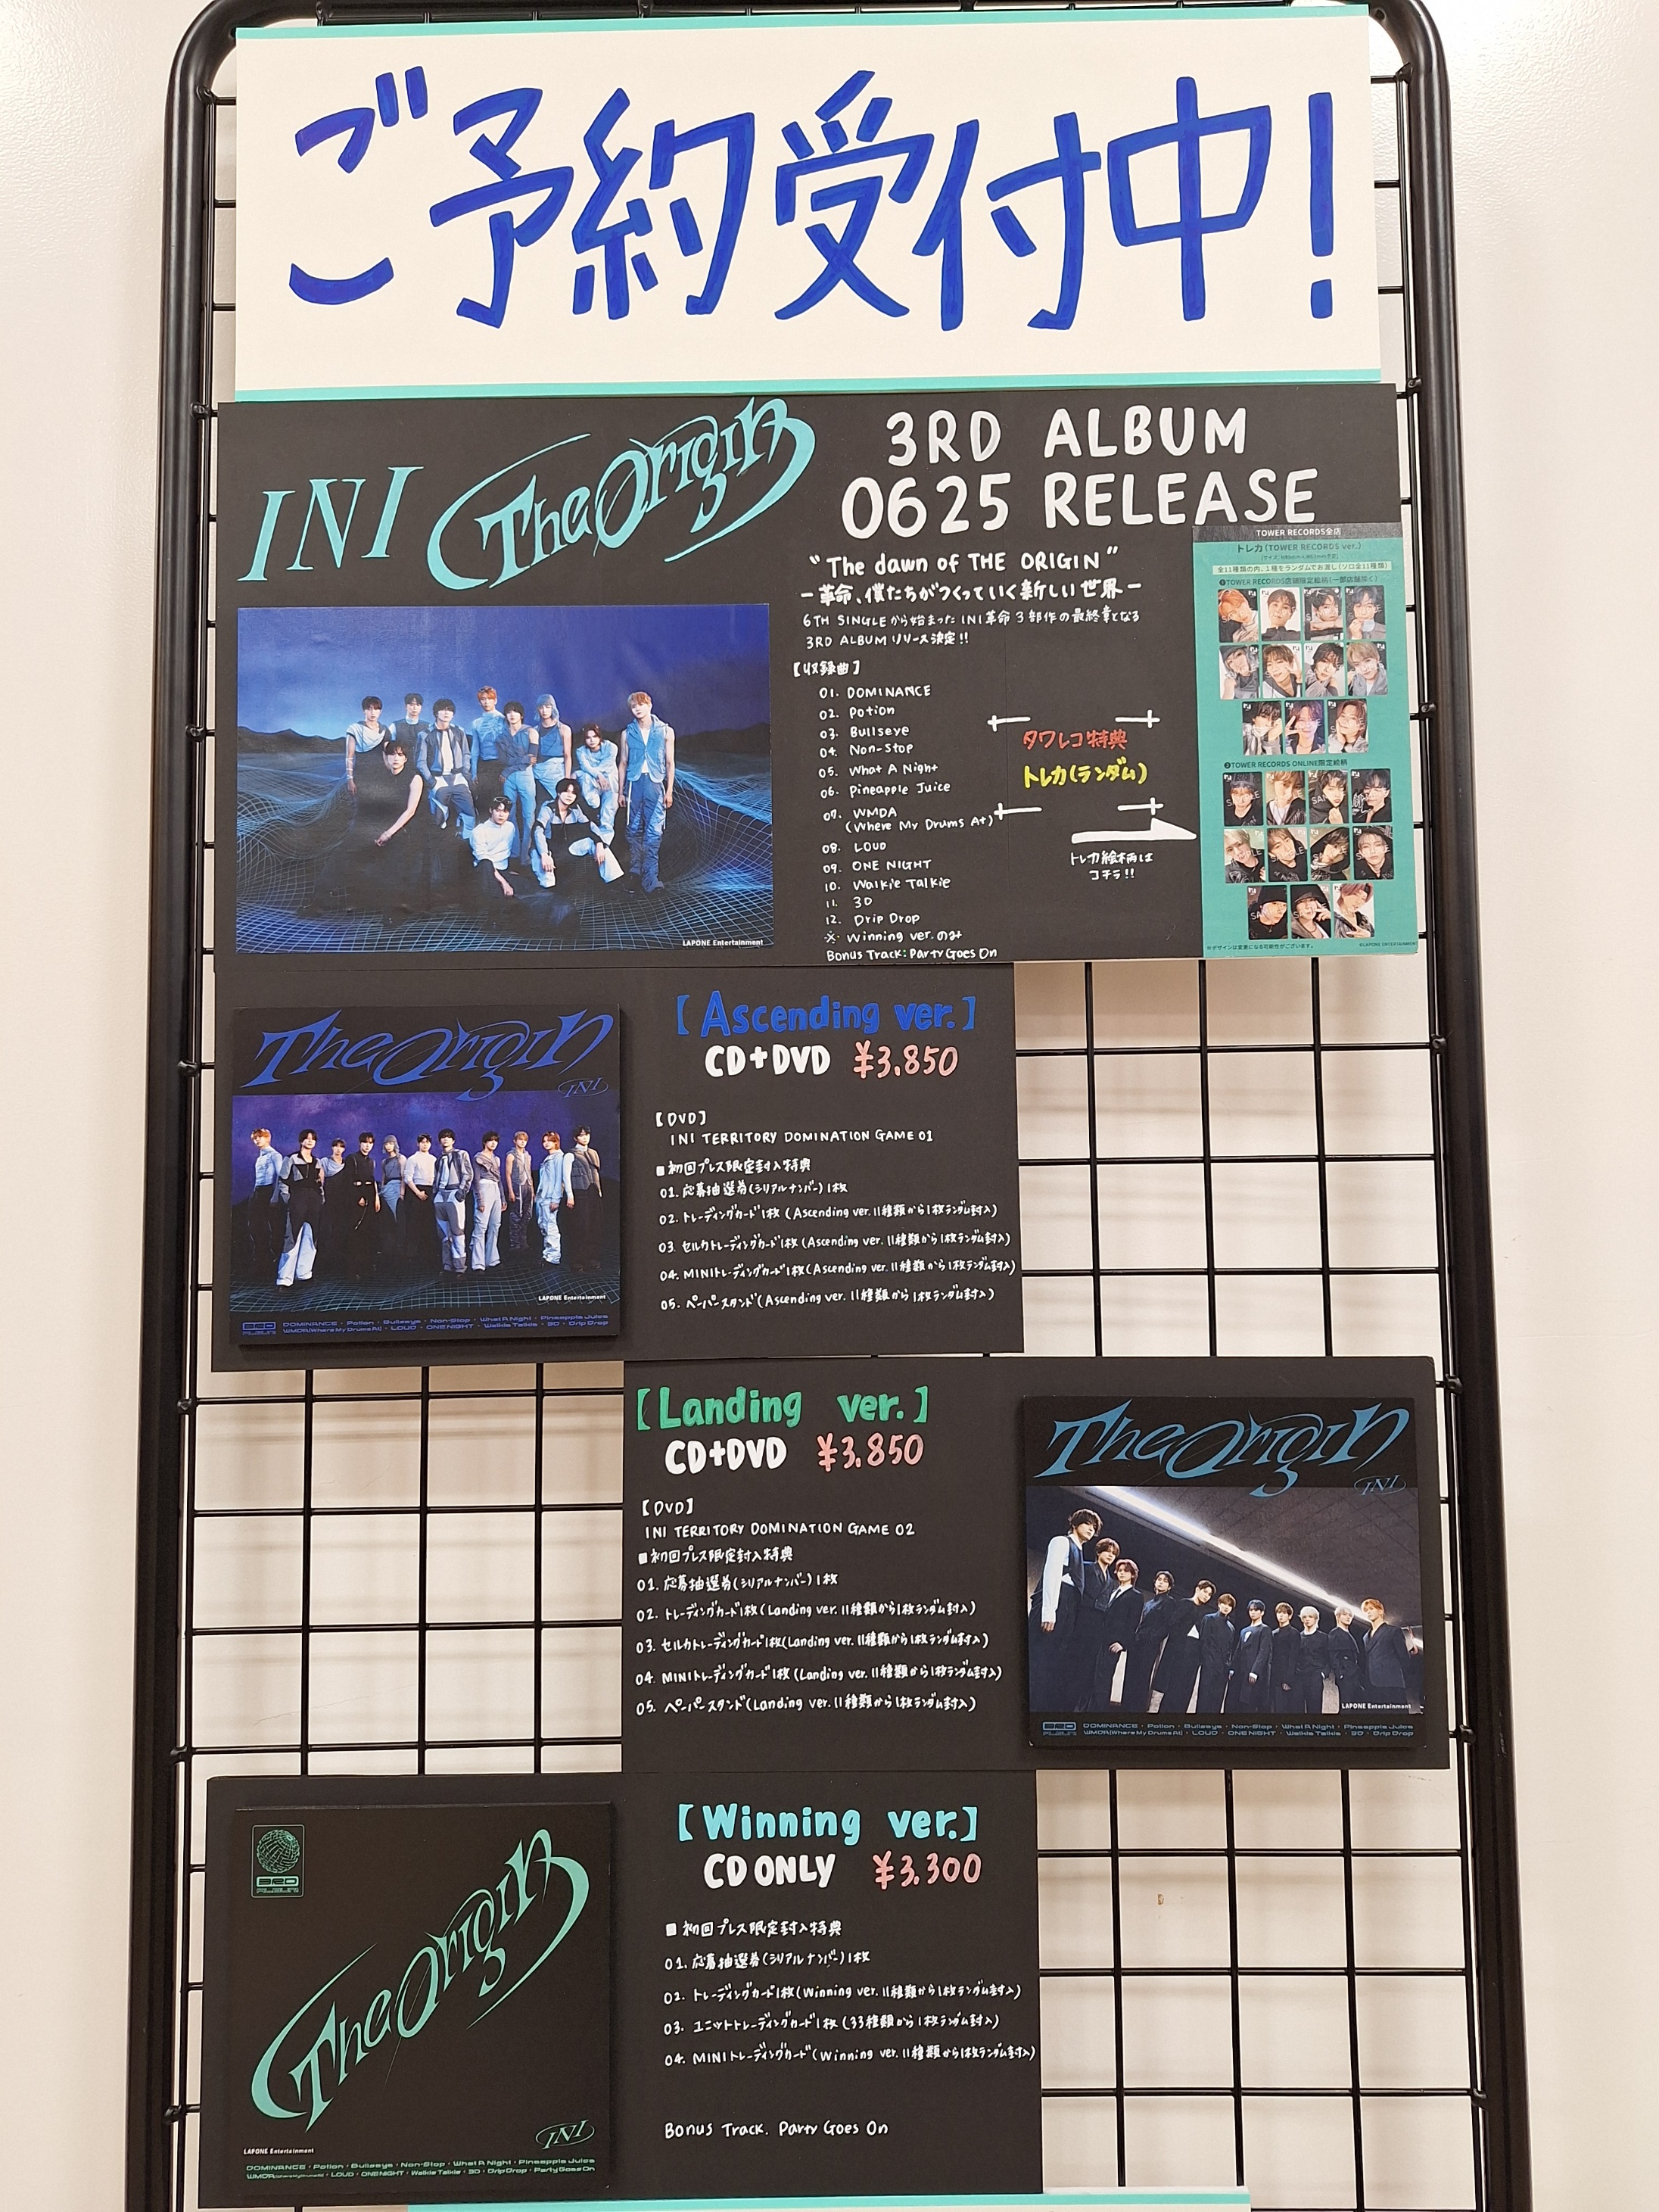 ご予約受付中!
INI The Origin
3RD ALBUM
0625 RELEASE
"The dawn of THE ORIGIN"
ー革命、僕たちがつくっていく新しい世界ー
6TH SINGLEから始まったINI革命3部作の最終章となる
3RD ALBUM リリース決定!!
【収録曲】
01. DOMINANCE
02. Potion
03. Bullseye
04. Non-Stop
05. What A Night
06. Pineapple Juice
07. WMDA
(Where My Drums At)
08. LOUD
09. ONE NIGHT
10. Walkie Talkie
11. 3D
12. Drip Drop
※ Winning ver.のみ
Bonus Track: Party Goes On
タワレコ特典
トレカ(ランダム)
トレカ絵柄は
コチラ!!
TOWER RECORDS全店
トレカ(TOWER RECORDS ver.)
全11種類の内、1種をランダムでお渡し(ソロ全11種類)
❶TOWER RECORDS店舗限定絵柄(一部店舗除く)
❷TOWER RECORDS ONLINE限定絵柄
※デザインは変更になる可能性がございます。
©LAPONE ENTERTAINMENT
LAPONE Entertainment
The Origin
INI
LAPONE Entertainment
3RD ALBUM
DOMINANCE・Potion・Bullseye・Non-Stop・What A Night・Pineapple Juice
WMDA(Where My Drums At)・LOUD・ONE NIGHT・Walkie Talkie・3D・Drip Drop
【Ascending ver.】
CD+DVD ¥3.850
【DVD】
INI TERRITORY DOMINATION GAME 01
■初回プレス限定封入特典
01. 応募抽選券(シリアルナンバー)1枚
02. トレーディングカード1枚(Ascending ver. 11種類から1枚ランダム封入)
03. セルカトレーディングカード1枚(Ascending ver. 11種類から1枚ランダム封入)
04. MINIトレーディングカード1枚(Ascending ver. 11種類から1枚ランダム封入)
05. ペーパースタンド(Ascending ver. 11種類から1枚ランダム封入)
【Landing ver.】
CD+DVD ¥3.850
【DVD】
INI TERRITORY DOMINATION GAME 02
■初回プレス限定封入特典
01. 応募抽選券(シリアルナンバー)1枚
02. トレーディングカード1枚(Landing ver. 11種類から1枚ランダム封入)
03. セルカトレーディングカード1枚(Landing ver. 11種類から1枚ランダム封入)
04. MINIトレーディングカード1枚(Landing ver. 11種類から1枚ランダム封入)
05. ペーパースタンド(Landing ver. 11種類から1枚ランダム封入)
The Origin
INI
LAPONE Entertainment
3RD ALBUM
DOMINANCE・Potion・Bullseye・Non-Stop・What A Night・Pineapple Juice
WMDA(Where My Drums At)・LOUD・ONE NIGHT・Walkie Talkie・3D・Drip Drop
3RD ALBUM
The Origin
INI
LAPONE Entertainment
DOMINANCE・Potion・Bullseye・Non-Stop・What A Night・Pineapple Juice
WMDA(Where My Drums At)・LOUD・ONE NIGHT・Walkie Talkie・3D・Drip Drop・Party Goes On
【Winning ver.】
CD ONLY ¥3.300
■初回プレス限定封入特典
01. 応募抽選券(シリアルナンバー)1枚
02. トレーディングカード1枚(Winning ver. 11種類から1枚ランダム封入)
03. ユニットトレーディングカード1枚(33種類から1枚ランダム封入)
04. MINIトレーディングカード(Winning ver. 11種類から1枚ランダム封入)
Bonus Track. Party Goes On